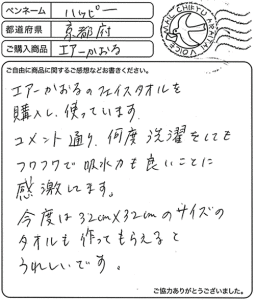 ペンネーム ハッピー
都道府県 京都府
ご購入商品 エアーかおる
ご自由に商品に関するご感想などお書きください。
エアーかおるのフェイスタオルを
購入し、使っています。
コメント通り、何度洗濯をしても
フワフワで吸水力も良いことに
感激してます。
今度は32cm×32cmのサイズの
タオルも作ってもらえると
うれしいです。
ご協力ありがとうございました。